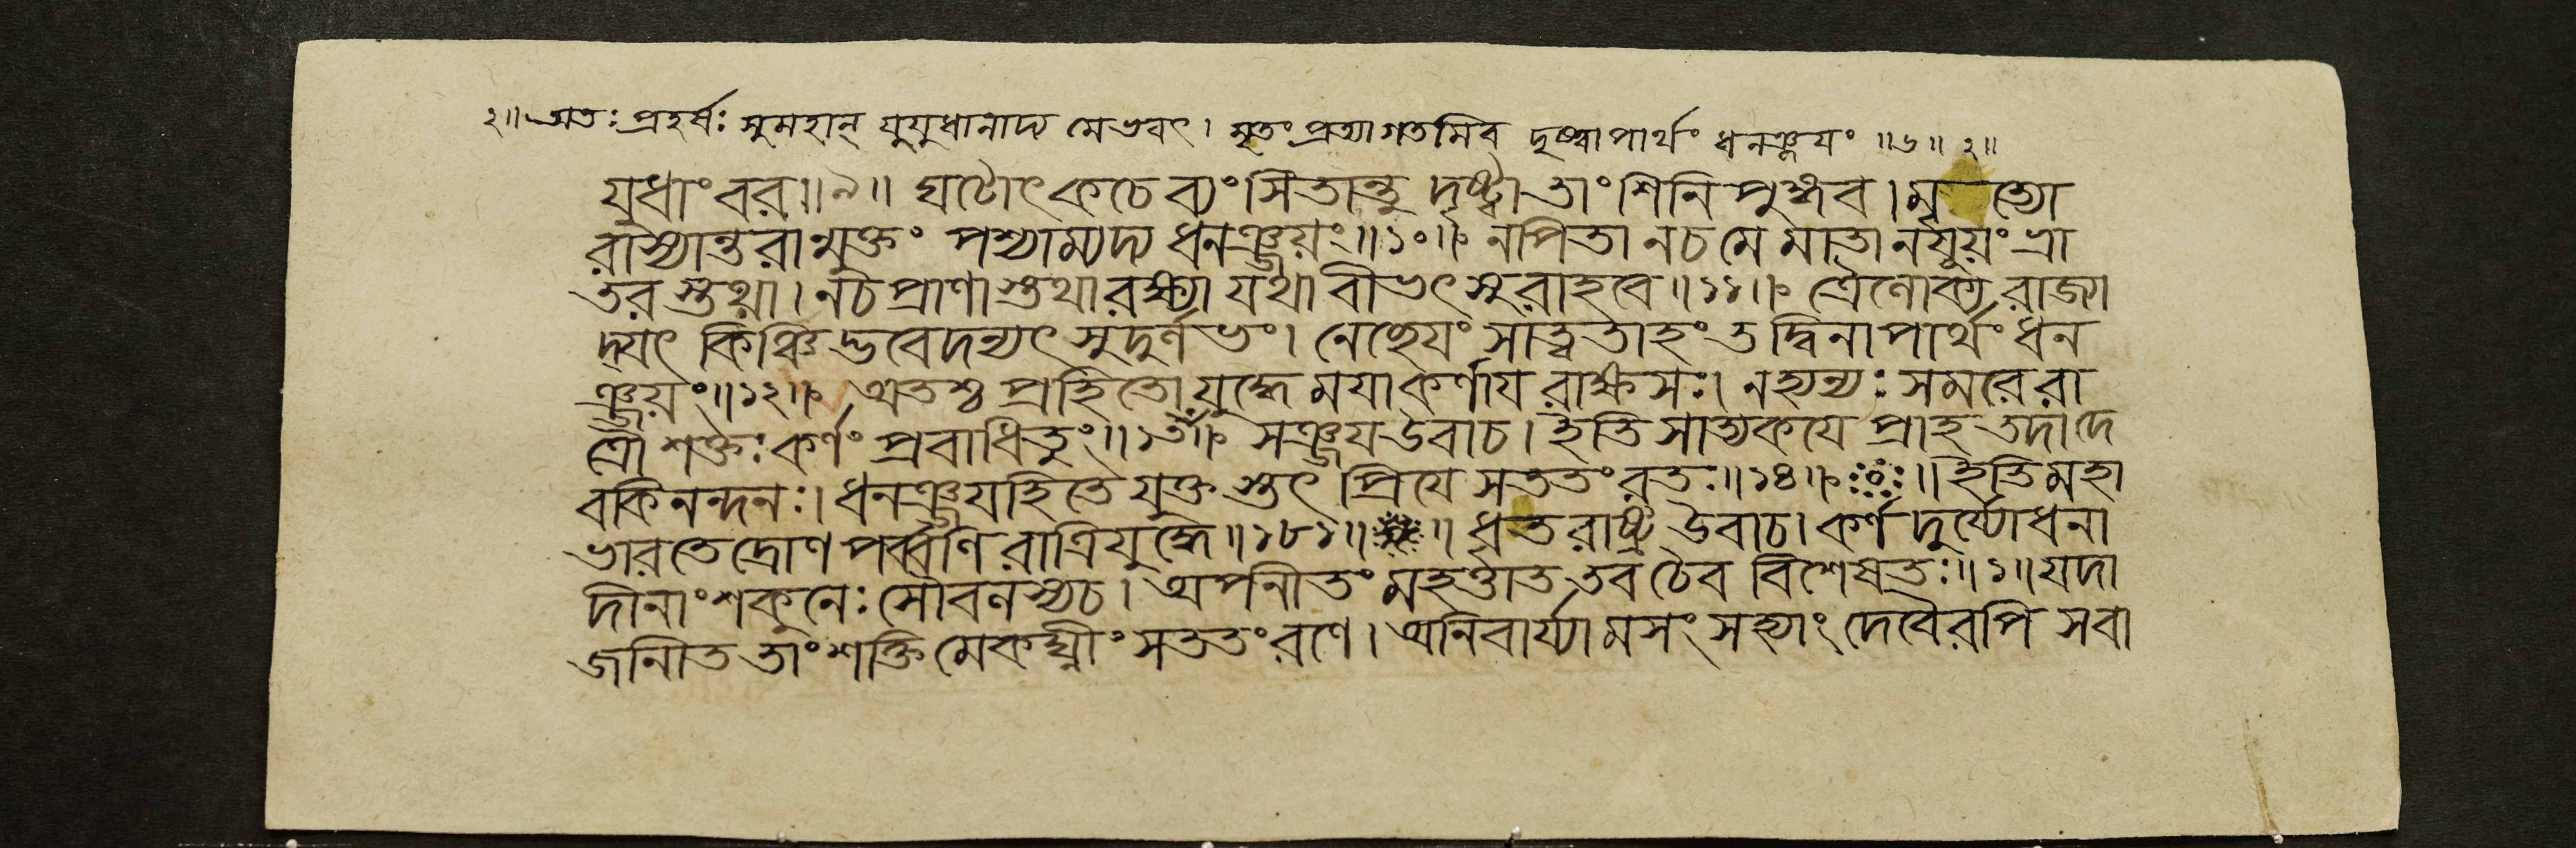 ২॥ অতঃ প্রহর্ষঃ সুমহান্ যুযুধানাদ্য মেভবৎ। মৃতং প্রত্যাগতমিব দৃষ্ট্বাপার্থং ধনঞ্জযং ॥৬॥ ২॥
যুধাংবর॥৯॥ ঘটোৎকচে ব্যংসিতান্তু দৃষ্ট্বাতাং শিনিপুঙ্গব। মৃ ত্যো
রাস্যান্তরান্মুক্তং পশ্যাম্যদ্য ধনঞ্জয়ং॥১০॥ নপিতা নচমে মাতা নযূয়ং ভ্রা
তরস্তথা। নচ প্রাণাস্তথা রক্ষ্যা যথা বীভৎসুরাহবে॥১১॥ ত্রৈলোক্য রাজ্যা
দ্যৎ কিঞ্চিদ্ভবেদন্যৎ সুদুর্লভং। নেচ্ছেযং সাত্বতাহং তদ্বিনাপার্থং ধন
ঞ্জয়ং॥১২॥ অতশ্চ প্রহিতো যুদ্ধে মযাকর্ণায রাক্ষসঃ। নহ্যন্যঃ সমরে রা
ত্রৌ শক্তঃ কর্ণং প্রবাধিতুং॥১৩॥ সঞ্জয উবাচ। ইতি সাত্যকযে প্রাহ তদাদে
বকিনন্দনঃ। ধনঞ্জযহিতে যুক্তস্তৎ প্রিযে সততং রতঃ॥১৪॥ ॥ ইতি মহা
ভারতে দ্রোণপর্ব্বণি রাত্রিযুদ্ধে॥১৮১॥ ॥ ধৃতরাষ্ট্র উবাচ। কর্ণ দুর্য্যোধনা
দীনাং শকুনেঃ সৌবলস্যচ। অপনীতং মহত্তাত তব চৈব বিশেষতঃ॥১॥ যদা
জানীত তাং শক্তিমেকঘ্নীং সততং রণে। অনিবার্য্যামসংসহ্যাং দেবৈরপি সবা